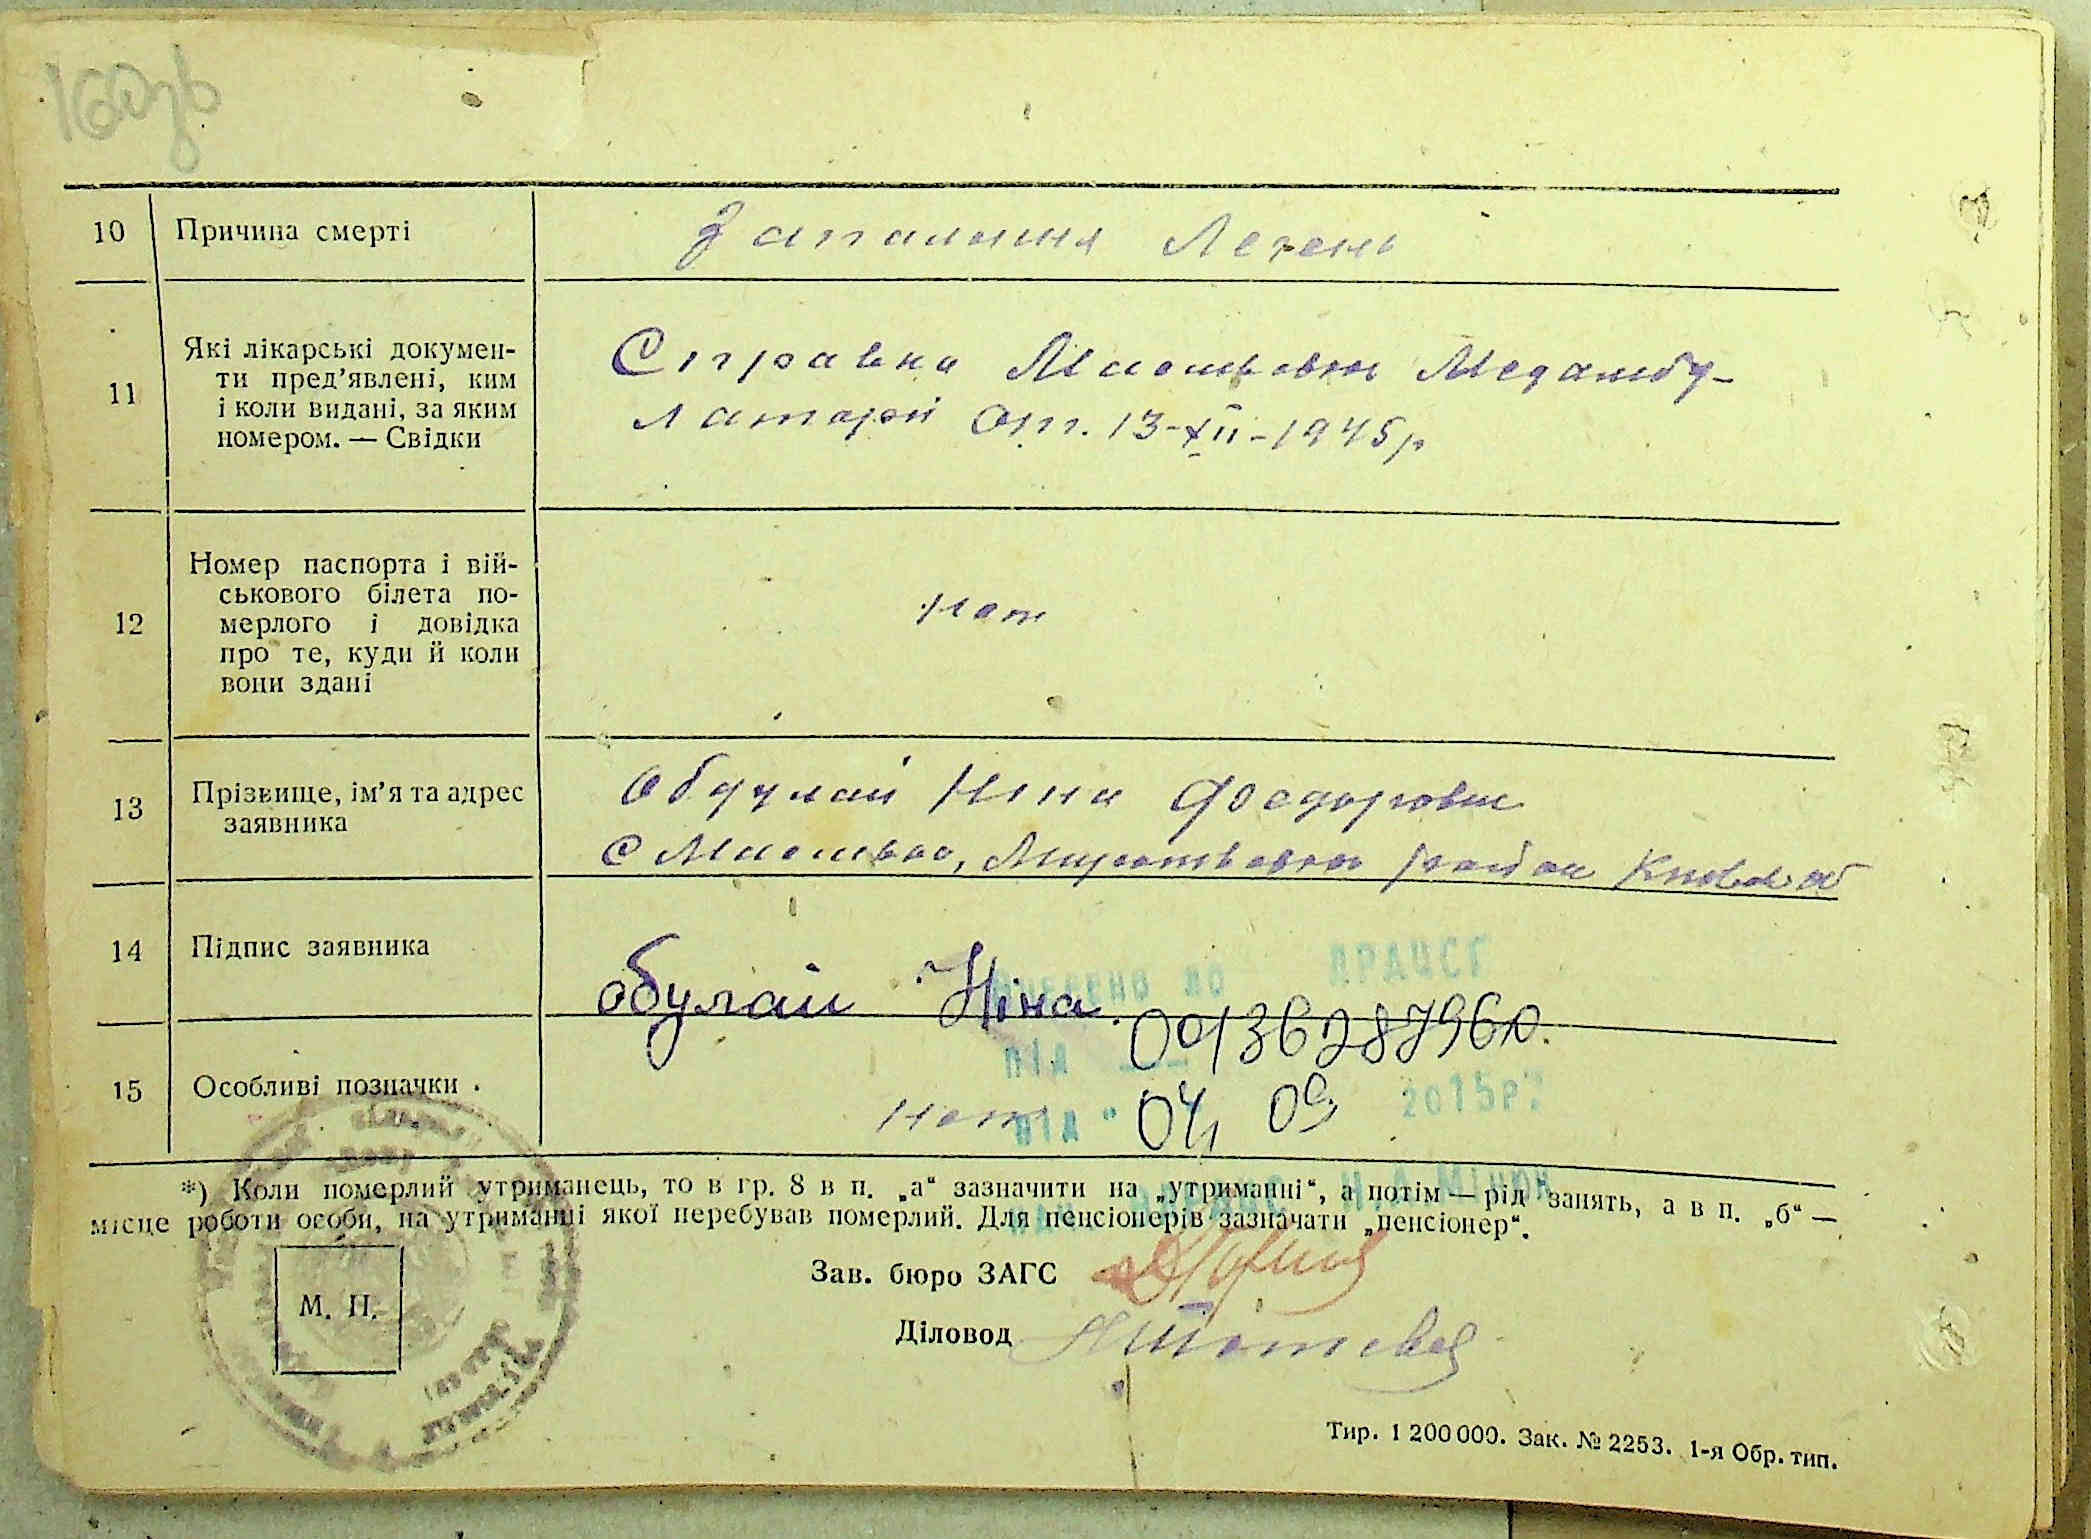 160зв
10 Причина смерті Запалення Легень
11 Які лікарські докумен-
ти пред'явлені, ким
і коли видані, за яким
номером. — Свідки
Справка Маслівской Медамбу-
латорій От. 13-XII-1945р
12 Номер паспорта і вій-
ськового білета по-
мерлого і довідка
про те, куди й коли
вони здані
нет
13 Прізвище, ім'я та адрес
заявника
Обулай Ніна Феодоровна
С Маслівка, Миронівский район Киевск об
14 Підпис заявника обулай Ніна.
Внесено до ДРАЦСГ
під 00136287960.
15 Особливі позначки нет
від " 04 09 2015р.
*) Коли померлий утриманець, то в гр. 8 в п. „а“ зазначити на „утриманні“, а потім — рід занять, а в п. „б“ —
місце роботи особи, на утриманні якої перебував померлий. Для пенсіонерів зазначати „пенсіонер“.
М. П.
Зав. бюро ЗАГС
Діловод
Тир. 1 200 000. Зак. № 2253. 1-я Обр. тип.